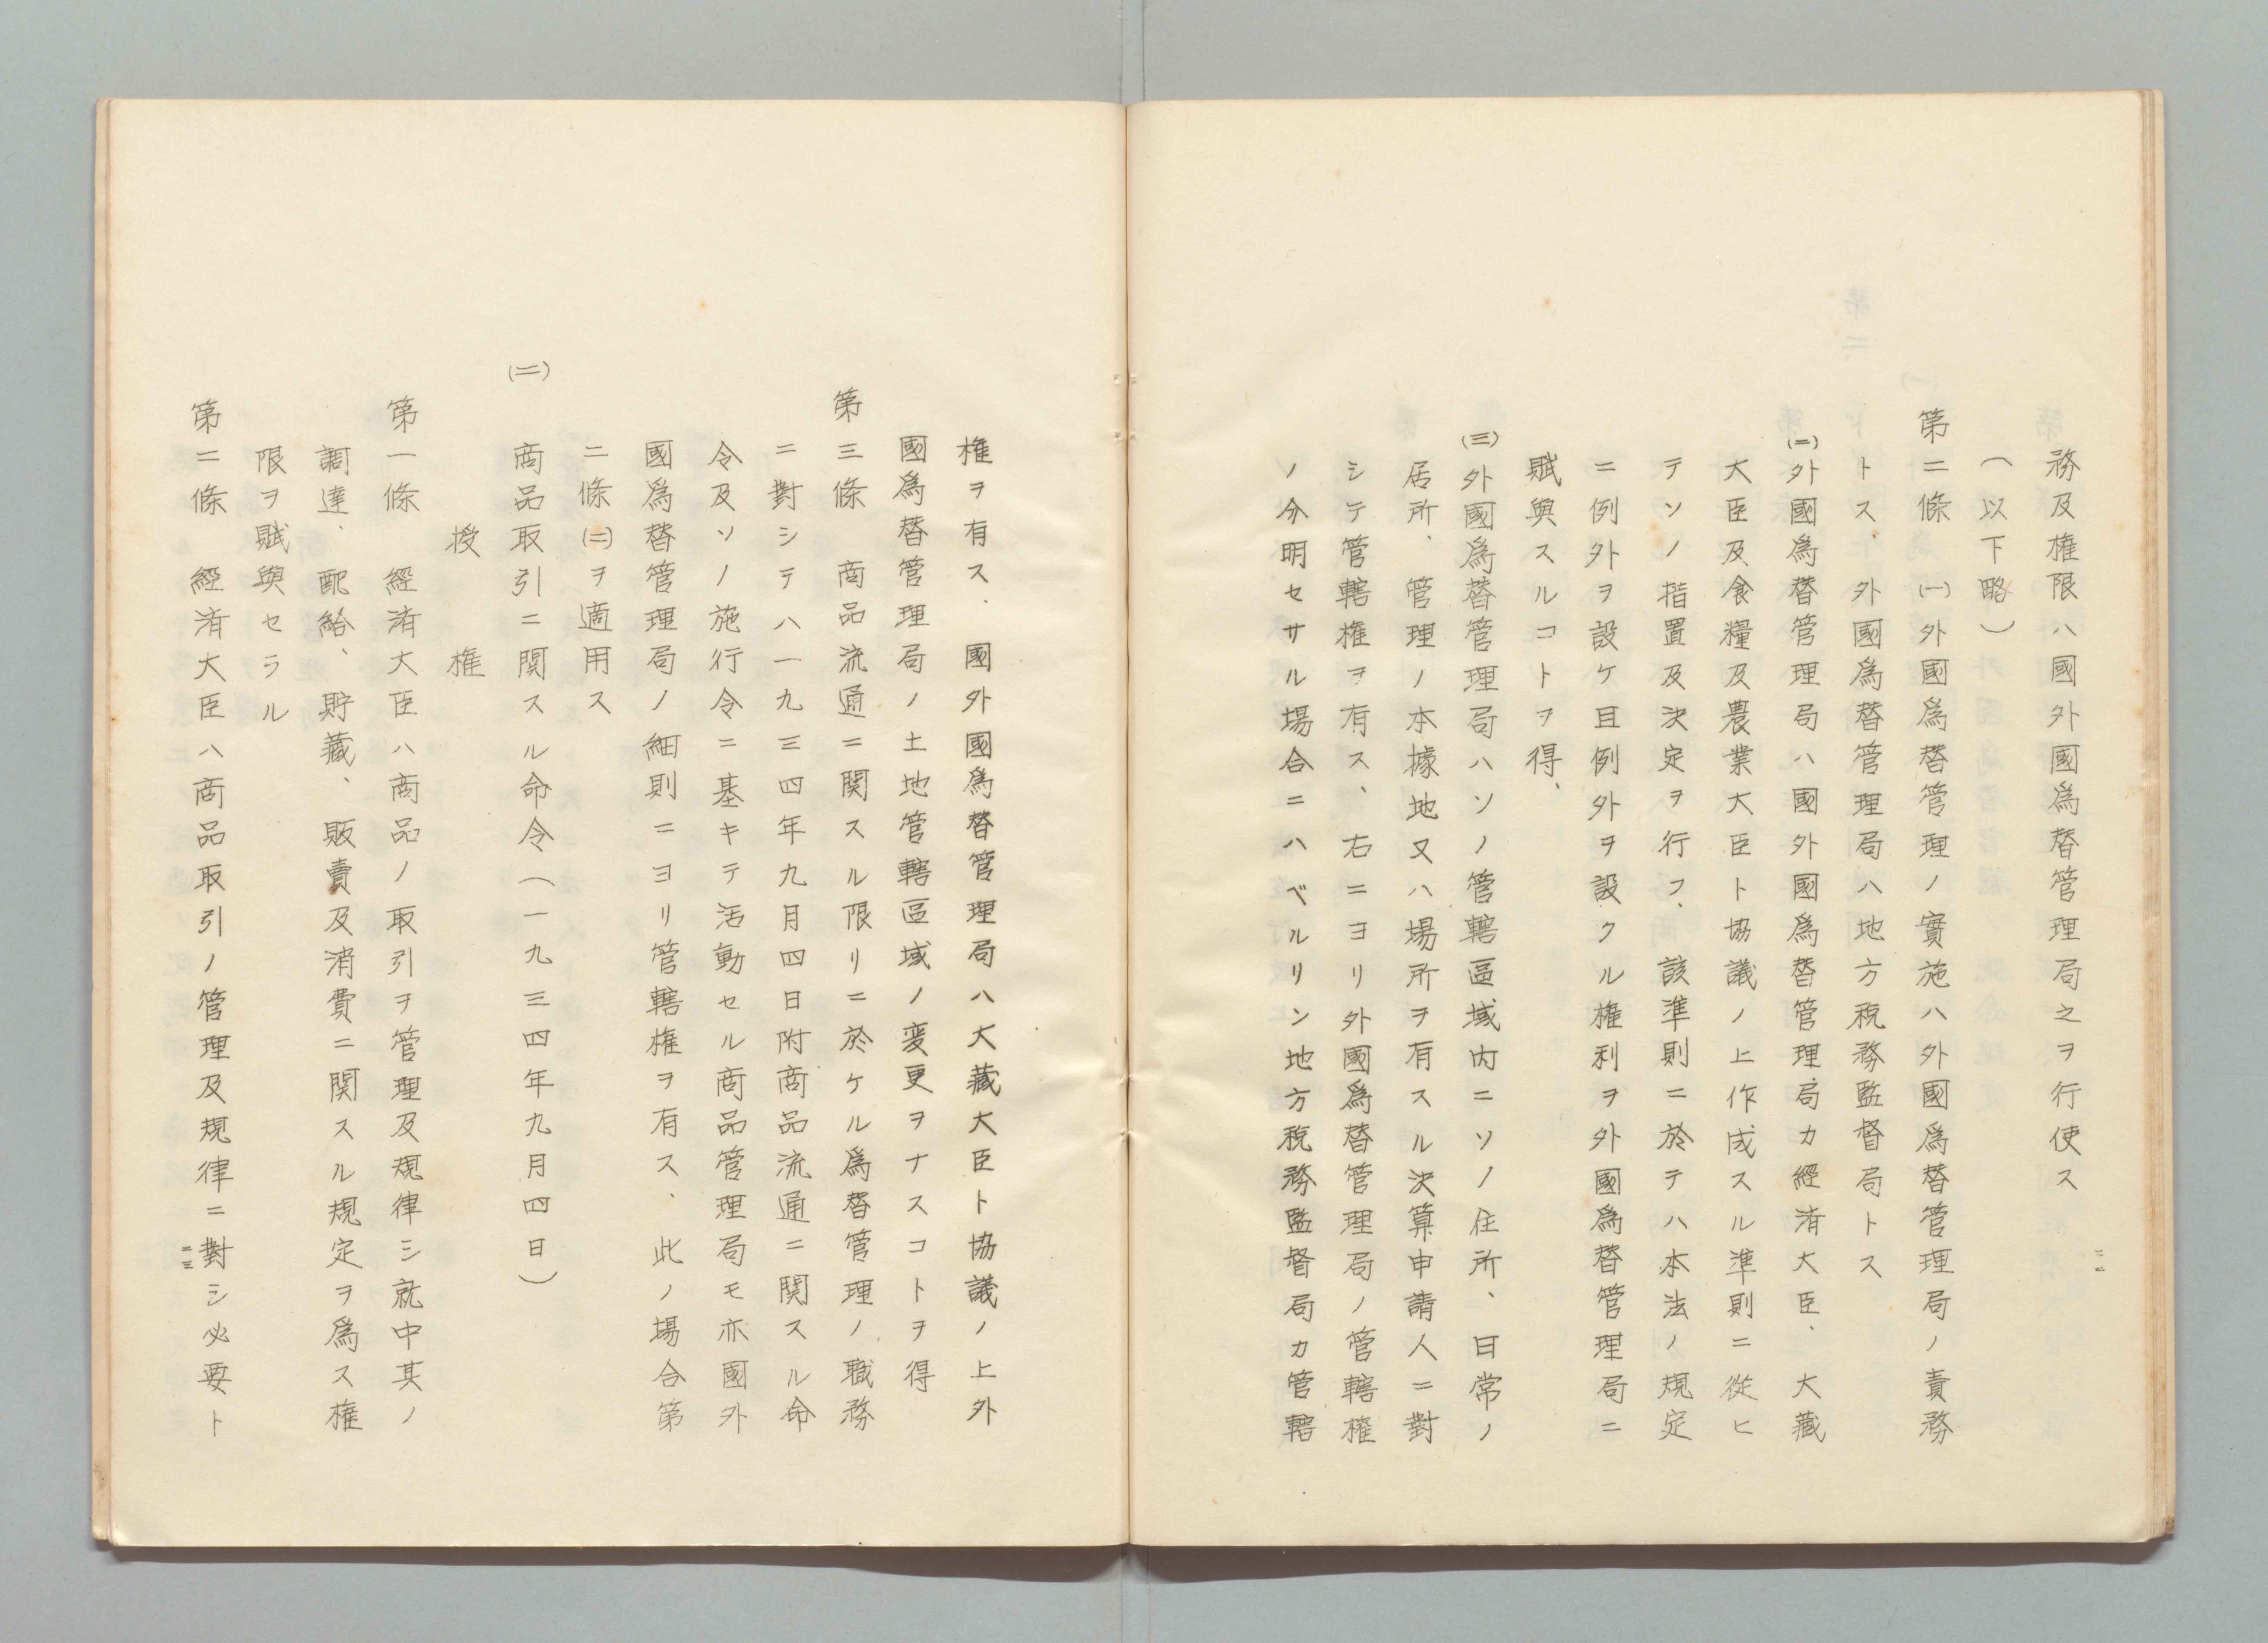 務及権限ハ國外國爲替管理局之ヲ行使ス
(以下略)
第二條　㈠外國爲替管理ノ實施ハ外國爲替管理局ノ責務
トス、外國爲替管理局ハ地方税務監督局トス
㈡外國爲替管理局ハ國外國爲替管理局カ經済大臣、大藏
大臣及食糧及農業大臣ト協議ノ上作成スル準則ニ從ヒ
テソノ指置及決定ヲ行フ、該準則ニ於テハ本法ノ規定
ニ例外ヲ設ケ且例外ヲ設クル権利ヲ外國爲替管理局ニ
賦與スルコトヲ得、
㈢外國爲替管理局ハソノ管轄區域内ニソノ住所、日常ノ
居所、管理ノ本據地又ハ場所ヲ有スル決算申請人ニ對
シテ管轄権ヲ有ス、右ニヨリ外國爲替管理局ノ管轄権
ノ分明セサル場合ニハベルリン地方税務監督局カ管轄
二二
権ヲ有ス、國外國爲替管理局ハ大藏大臣ト協議ノ上外
國爲替管理局ノ土地管轄區域ノ変更ヲナスコトヲ得
第三條　商品流通ニ関スル限リニ於ケル爲替管理ノ職務
ニ對シテハ一九三四年九月四日附商品流通ニ関スル命
令及ソノ施行令ニ基キテ活動セル商品管理局モ亦國外
國爲替管理局ノ細則ニヨリ管轄権ヲ有ス、此ノ場合第
二條㈡ヲ適用ス
㈡　商品取引ニ関スル命令(一九三四年九月四日)
授　権
第一條　經済大臣ハ商品ノ取引ヲ管理及規律シ就中其ノ
調達、配給、貯藏、販賣及消費ニ関スル規定ヲ爲ス権
限ヲ賦與セラル
第二條　經済大臣ハ商品取引ノ管理及規律ニ對シ必要ト
二三